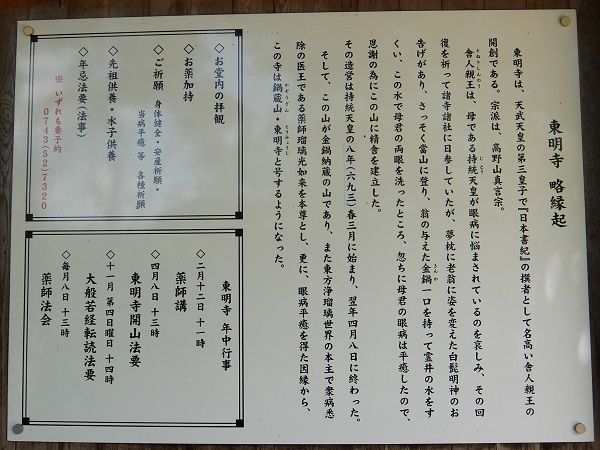 東明寺 略縁起
東明寺は、天武天皇の第三皇子で『日本書紀』の撰者として名高い舎人親王の
開創である。宗派は、高野山真言宗。
舎人親王は、母である持統天皇が眼病に悩まされているのを哀しみ、その回
復を祈って諸寺諸社に日参していたが、夢枕に老翁に姿を変えた白髭明神のお
告げがあり、さっそく当山に登り、翁の与えた金鍋一口を持って霊井の水をす
くい、この水で母君の両眼を洗ったところ、忽ちに母君の眼病は平癒したので、
恩謝の為にこの山に精舎を建立した。
その造営は持統天皇の八年(六九三)春三月に始まり、翌年四月八日に終わった。
そして、この山が金鍋納蔵の山であり、また東方浄瑠璃世界の本主で衆病悉
除の医王である薬師瑠璃光如来を本尊とし、更に、眼病平癒を得た因縁から、
この寺は鍋蔵山・東明寺と号するようになった。
◇お堂内の拝観
◇お薬加持
◇ご祈願 身体健全・安産祈願
当病平癒 等 各種祈願
◇先祖供養・水子供養
◇年忌法要(法事)
※ いずれも要予約
0743(52)7320
東明寺 年中行事
◇二月十二日 十一時
薬師講
◇四月八日 十三時
東明寺開山法要
◇十一月 第四日曜日 十四時
大般若経転読法要
◇毎月八日 十三時
薬師法会